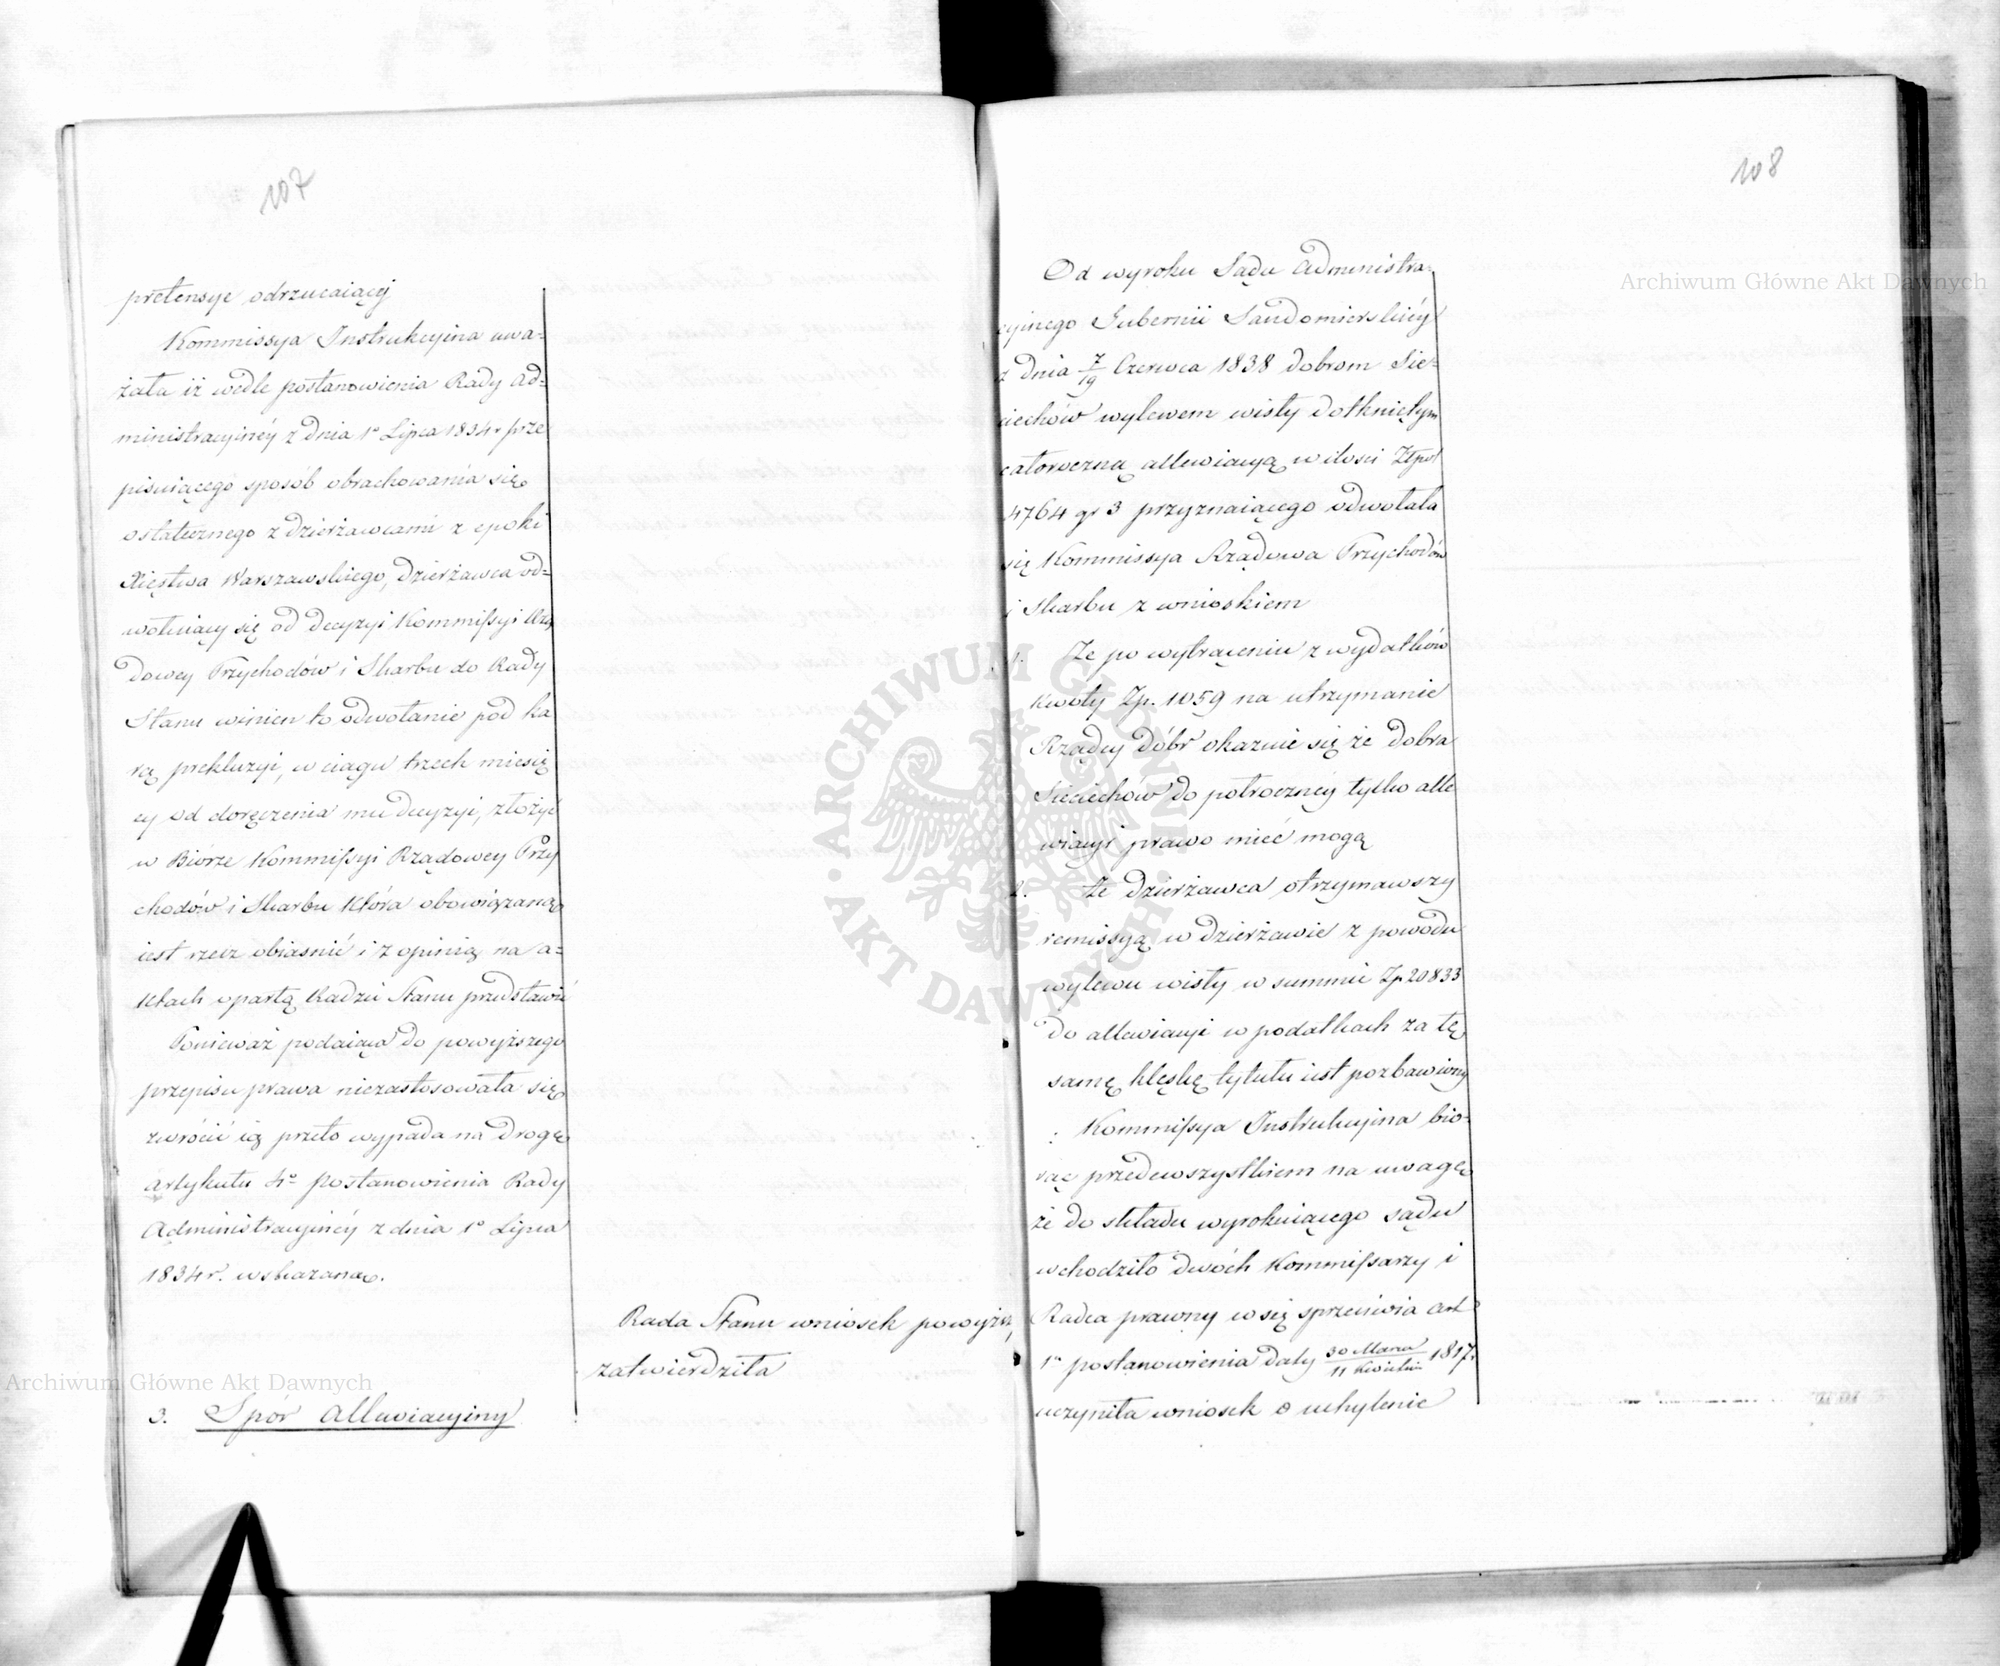 107
pretensye odrzucaiącej
Kommissya Instrukcyina uwa-
żała iż wedle postanowienia Rady Ad-
ministracyinéy z dnia 1º Lipca 1834 r prze
pisuiącego sposób obrachowania się
ostatecznego z dzierżawcami z epoki
Xięstwa Warszawskiego, dzierżawca od-
wołuiący się od decyzyi Kommissyi Rzą
dowey Przychodów i Skarbu do Rady
Stanu winien to odwołanie pod ka
rą prekluzyi, w ciągu trzech miesię
cy od doręczenia mu decyzyi, złożyć
w Biórze Kommissyi Rządowey Przy
chodów i Skarbu która obowiązaną
iest rzecz obiasnić i z opinią na a-
ktach opartą Radzie Stanu przedstawić
Ponieważ podaiąca do powyższego
przepisu prawa niezastosowała się
zwrócić ią przeto wypada na drogę
artykułu 4º postanowienia Rady
Administracyinéy z dnia 1º Lipca
1834 r. wskazaną.
Rada Stanu wniosek powyższy
zatwierdziła
3. Spór Allewiacyiny
108
Od wyroku Sądu Administra-
cyinego Gubernii Sandomierskiéy
z dnia 7/19 Czerwca 1838 dobrom Sie-
ciechów wylewem wisły dotkniętym
całoroczną allewiacyą w ilości Złpol
4764 gr 3 przyznaiącego odwołała
się Kommissya Rządowa Przychodów
i Skarbu z wnioskiem
1. Że po wytrąceniu z wydatków
kwoty Zp. 1059 na utrzymanie
Rządcy dóbr okazuie się że dobra
Sieciechów do półrocznéy tylko alle
wiacyi prawo mieć mogą
2. że dzierżawca otrzymawszy
remissyą w dzierżawie z powodu
wylewu wisły w summie Zp 20833
do allewiacyi w podatkach za tę
samę klęskę tytułu iest pozbawiony
Kommissya Instrukcyina bio-
rąc przedewszystkiem na uwagę
że do składu wyrokuiącego sądu
wchodziło dwóch Kommissarzy i
Radca prawny co się sprzeciwia art
1º postanowienia daty 30 Marca/11 Kwietnia 1817 r
uczyniła wniosek o uchylenie
Archiwum Główne Akt Dawnych
Archiwum Główne Akt Dawnych
ARCHIWUM GŁÓWNE AKT DAWNYCH